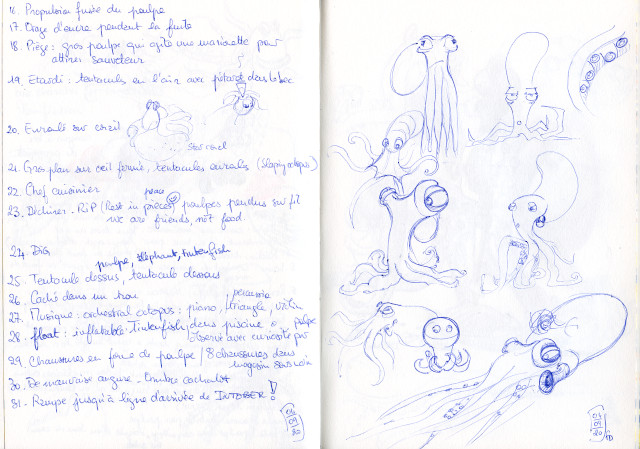 16. Propulsion fusée du poulpe
17. Orage d'encre pendant la fuite
18. Piège : gros poulpe qui agite une marionette pour
attirer sauveteur
19. : tentacules en l'air avec pétard dans le bec
20. Enroulé sur corail
Star corail
21. Gros plan sur oeil fermé, tentacules enroulés (Sleeping octopus)
22. Chef cuisinier
peace
23. Déchirer - RIP (Rest in pieces) poulpes pendus sur fil
we are friends, not food
24. DIG
poulpe, éléphant, tintenfish
25. Tentacule dessus, tentacule dessous
26. Caché dans un trou
percussio
27. Musique : orchestral octopus : piano, triangle, violin
28. float : inflatable Tintenfish dans piscine poulpe
observé avec curiosité par
29. Chaussures en forme de poulpe / 8 chaussures dans
magasin
30. De mauvaise augure - Ombre cachalot
31. Rampe jusqu'à ligne d'arrivée de INTOBER !
01
01
20
01
01
20